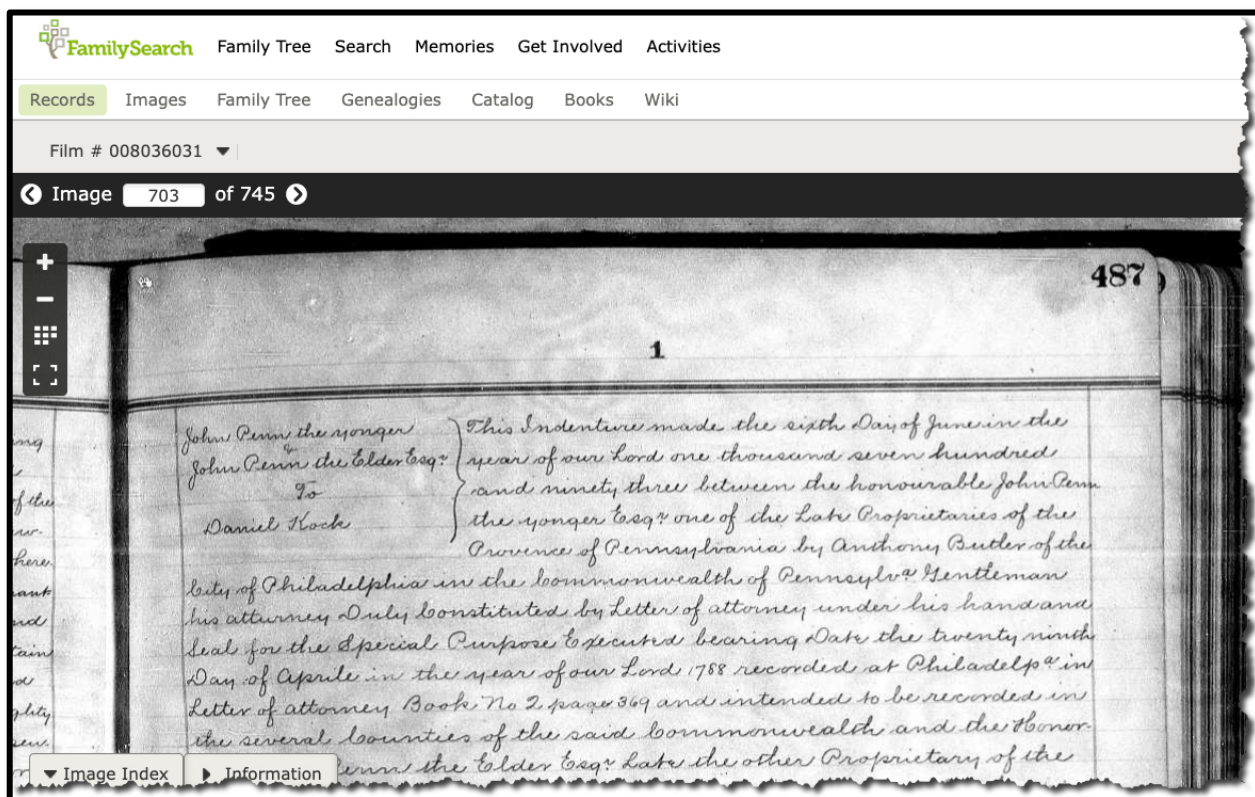 FamilySearch Family Tree Search Memories Get Involved Activities
Records Images Family Tree Genealogies Catalog Books Wiki
Film # 008036031
Image 703 of 745
487
1
John Penn the yonger
&
John Penn the Elder Esqr
To
Daniel Kock
This Indenture made the sixth Day of June in the
year of our Lord one thousand seven hundred
and ninety three between the honourable John Penn
the yonger Esqr one of the Late Proprietaries of the
Provence of Pennsylvania by Anthony Butler of the
City of Philadelphia in the Commonwealth of Pennsylva Gentleman
his atturney Duly Constituted by Letter of attorney under his hand and
Seal for the Special Purpose Executed bearing Date the twenty ninth
Day of Aprile in the year of our Lord 1788 recorded at Philadelpa in
Letter of attorney Book No 2 page 369 and intended to be recorded in
the several Counties of the said Commonwealth and the Honor-
Penn the Elder Esqr Late the other Proprietary of the
ing
of the
here
tain
Image Index Information